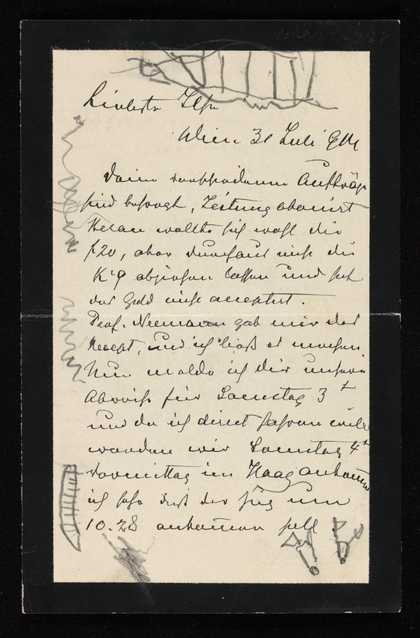 Liebste Ilse
Wien 31 Juli
Deine verschiedenen Aufträge
sind besorgt, Zeitung aboniert
Heran wollte sich wohl die
f20, aber durchaus nicht die
K 9 abziehen lassen und hat
das Geld nicht acceptirt.
Prof. Neumann gab mir das
Recept, und ich ließ es machen
Nun melde ich dir unsere
Abreise für Samstag 3t
und da ich direct fahren will
werden wir Sonntag 4t
vormittag im Haag ankommen
ich sehe daß der Zug um
10.28 ankommen soll